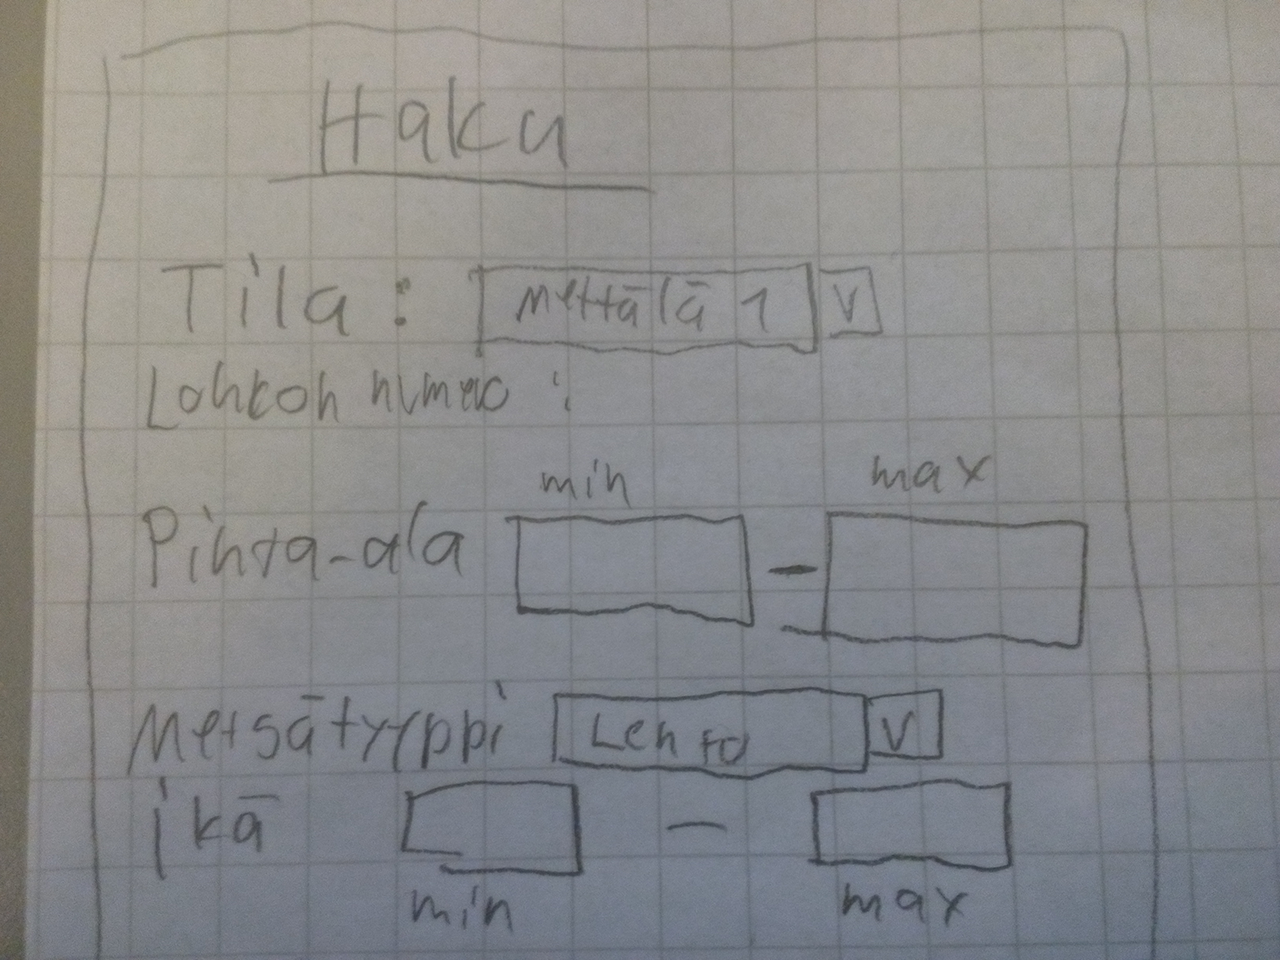 Haku
Tila : Mettälä 1 V
Lohkon numero :
min max
Pinta-ala -
Metsätyyppi Lehto V
ikä -
min max